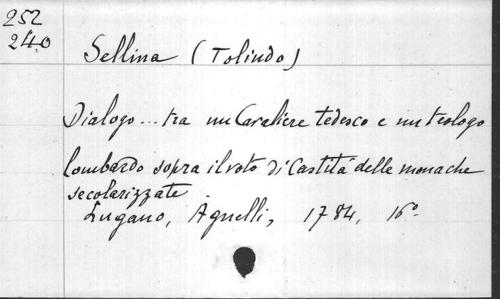 252
240
Sellina (Tolindo)
Dialogo... tra un Cavaliere tedesco e un teologo
lombardo sopra il voto di Castità delle monache
secolarizzate.
Lugano, Agnelli, 1784, 16°.